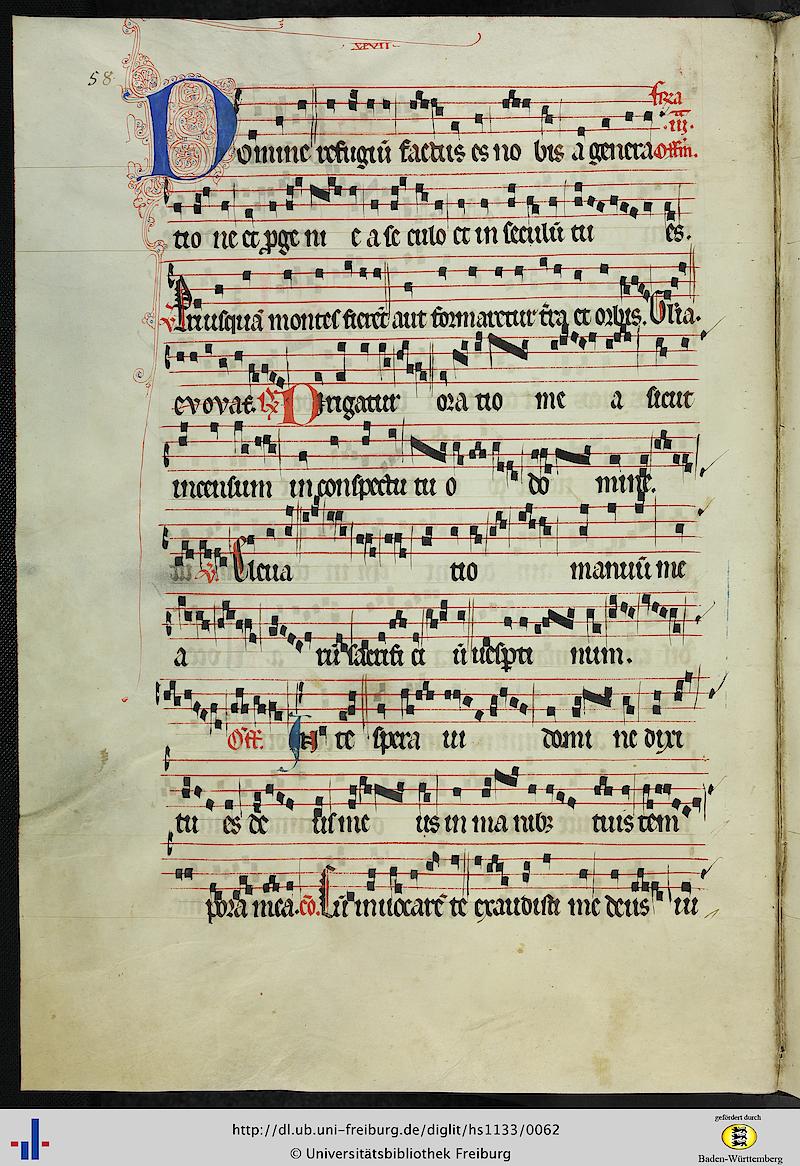 58.
xlvii
fr̄za
.iii.
Domine refugiū factus es no bis a genera Offm̄.
tio ne et p̱ge ni e a se culo et in seculū tu es.
v̄ Priusquā montes fierēt aut formaretur t̄ra et orbis. Glīa.
evovae. R̄ Dirigatur ora tio me a sicut
incensum in conspectu tu o do mine.
v̄. Eleua tio manuū me
a rū sacrifi ci ū uesp̱ti num.
Off̄. In te spera ui domi ne dixi
tu es de us me us in ma nibꝫ tuis tem
pora mea. cō. Cū inuocarē te exaudisti me deus iu
http://dl.ub.uni-freiburg.de/diglit/hs1133/0062
© Universitätsbibliothek Freiburg
gefördert durch
Baden-Württemberg